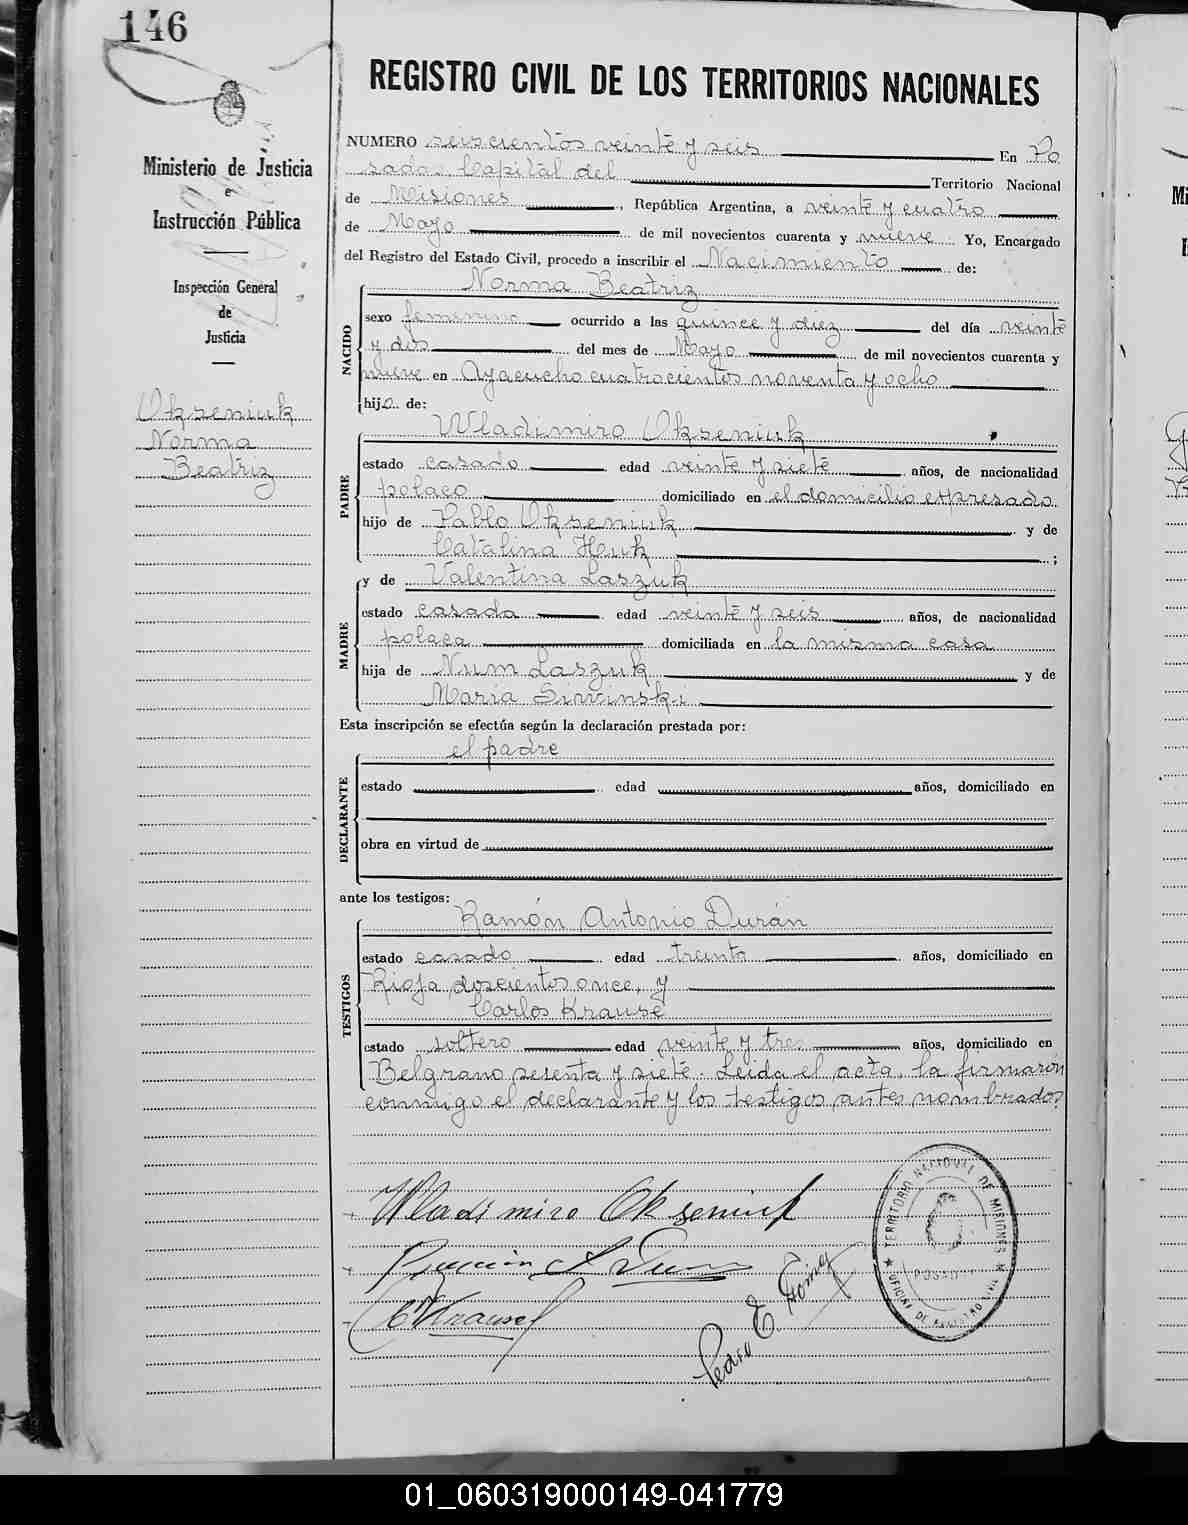 146
Ministerio de Justicia
e
Instrucción Pública
Inspección General
de
Justicia
Okseniuk
Norma
Beatriz
REGISTRO CIVIL DE LOS TERRITORIOS NACIONALES
NUMERO seiscientos veinte y seis En Po
sadas Capital del Territorio Nacional
de Misiones, República Argentina, a veinte y cuatro
de Mayo de mil novecientos cuarenta y nueve Yo, Encargado
del Registro del Estado Civil, procedo a inscribir el Nacimiento de:
NACIDO
Norma Beatriz
sexo femenino ocurrido a las quince y diez del día veinte
y dos del mes de Mayo de mil novecientos cuarenta y
nueve en Ayacucho cuatrocientos noventa y ocho
hijo de:
PADRE
Wladimiro Okseniuk
estado casado edad veinte y siete años, de nacionalidad
polaco domiciliado en el domicilio expresado
hijo de Pablo Okseniuk y de
Catalina Huk ;
MADRE
y de Valentina Laszuk
estado casada edad veinte y seis años, de nacionalidad
polaca domiciliada en la misma casa
hija de Num Laszuk y de
Maria Siwinski
Esta inscripción se efectúa según la declaración prestada por:
DECLARANTE
el padre
estado edad años, domiciliado en
obra en virtud de
ante los testigos:
TESTIGOS
Ramón Antonio Durán
estado casado edad treinta años, domiciliado en
Rioja doscientos once, y
Carlos Krause
estado soltero edad veinte y tres años, domiciliado en
Belgrano sesenta y siete. Leida el acta, la firmaron
conmigo el declarante y los testigos antes nombrados.
Wladimiro Okseniuk
CKrause
Pedro E.
TERRITORIO NACIONAL DE MISIONES
POSADAS
OFICINA DE REGISTRO CIVIL
01_060319000149-041779